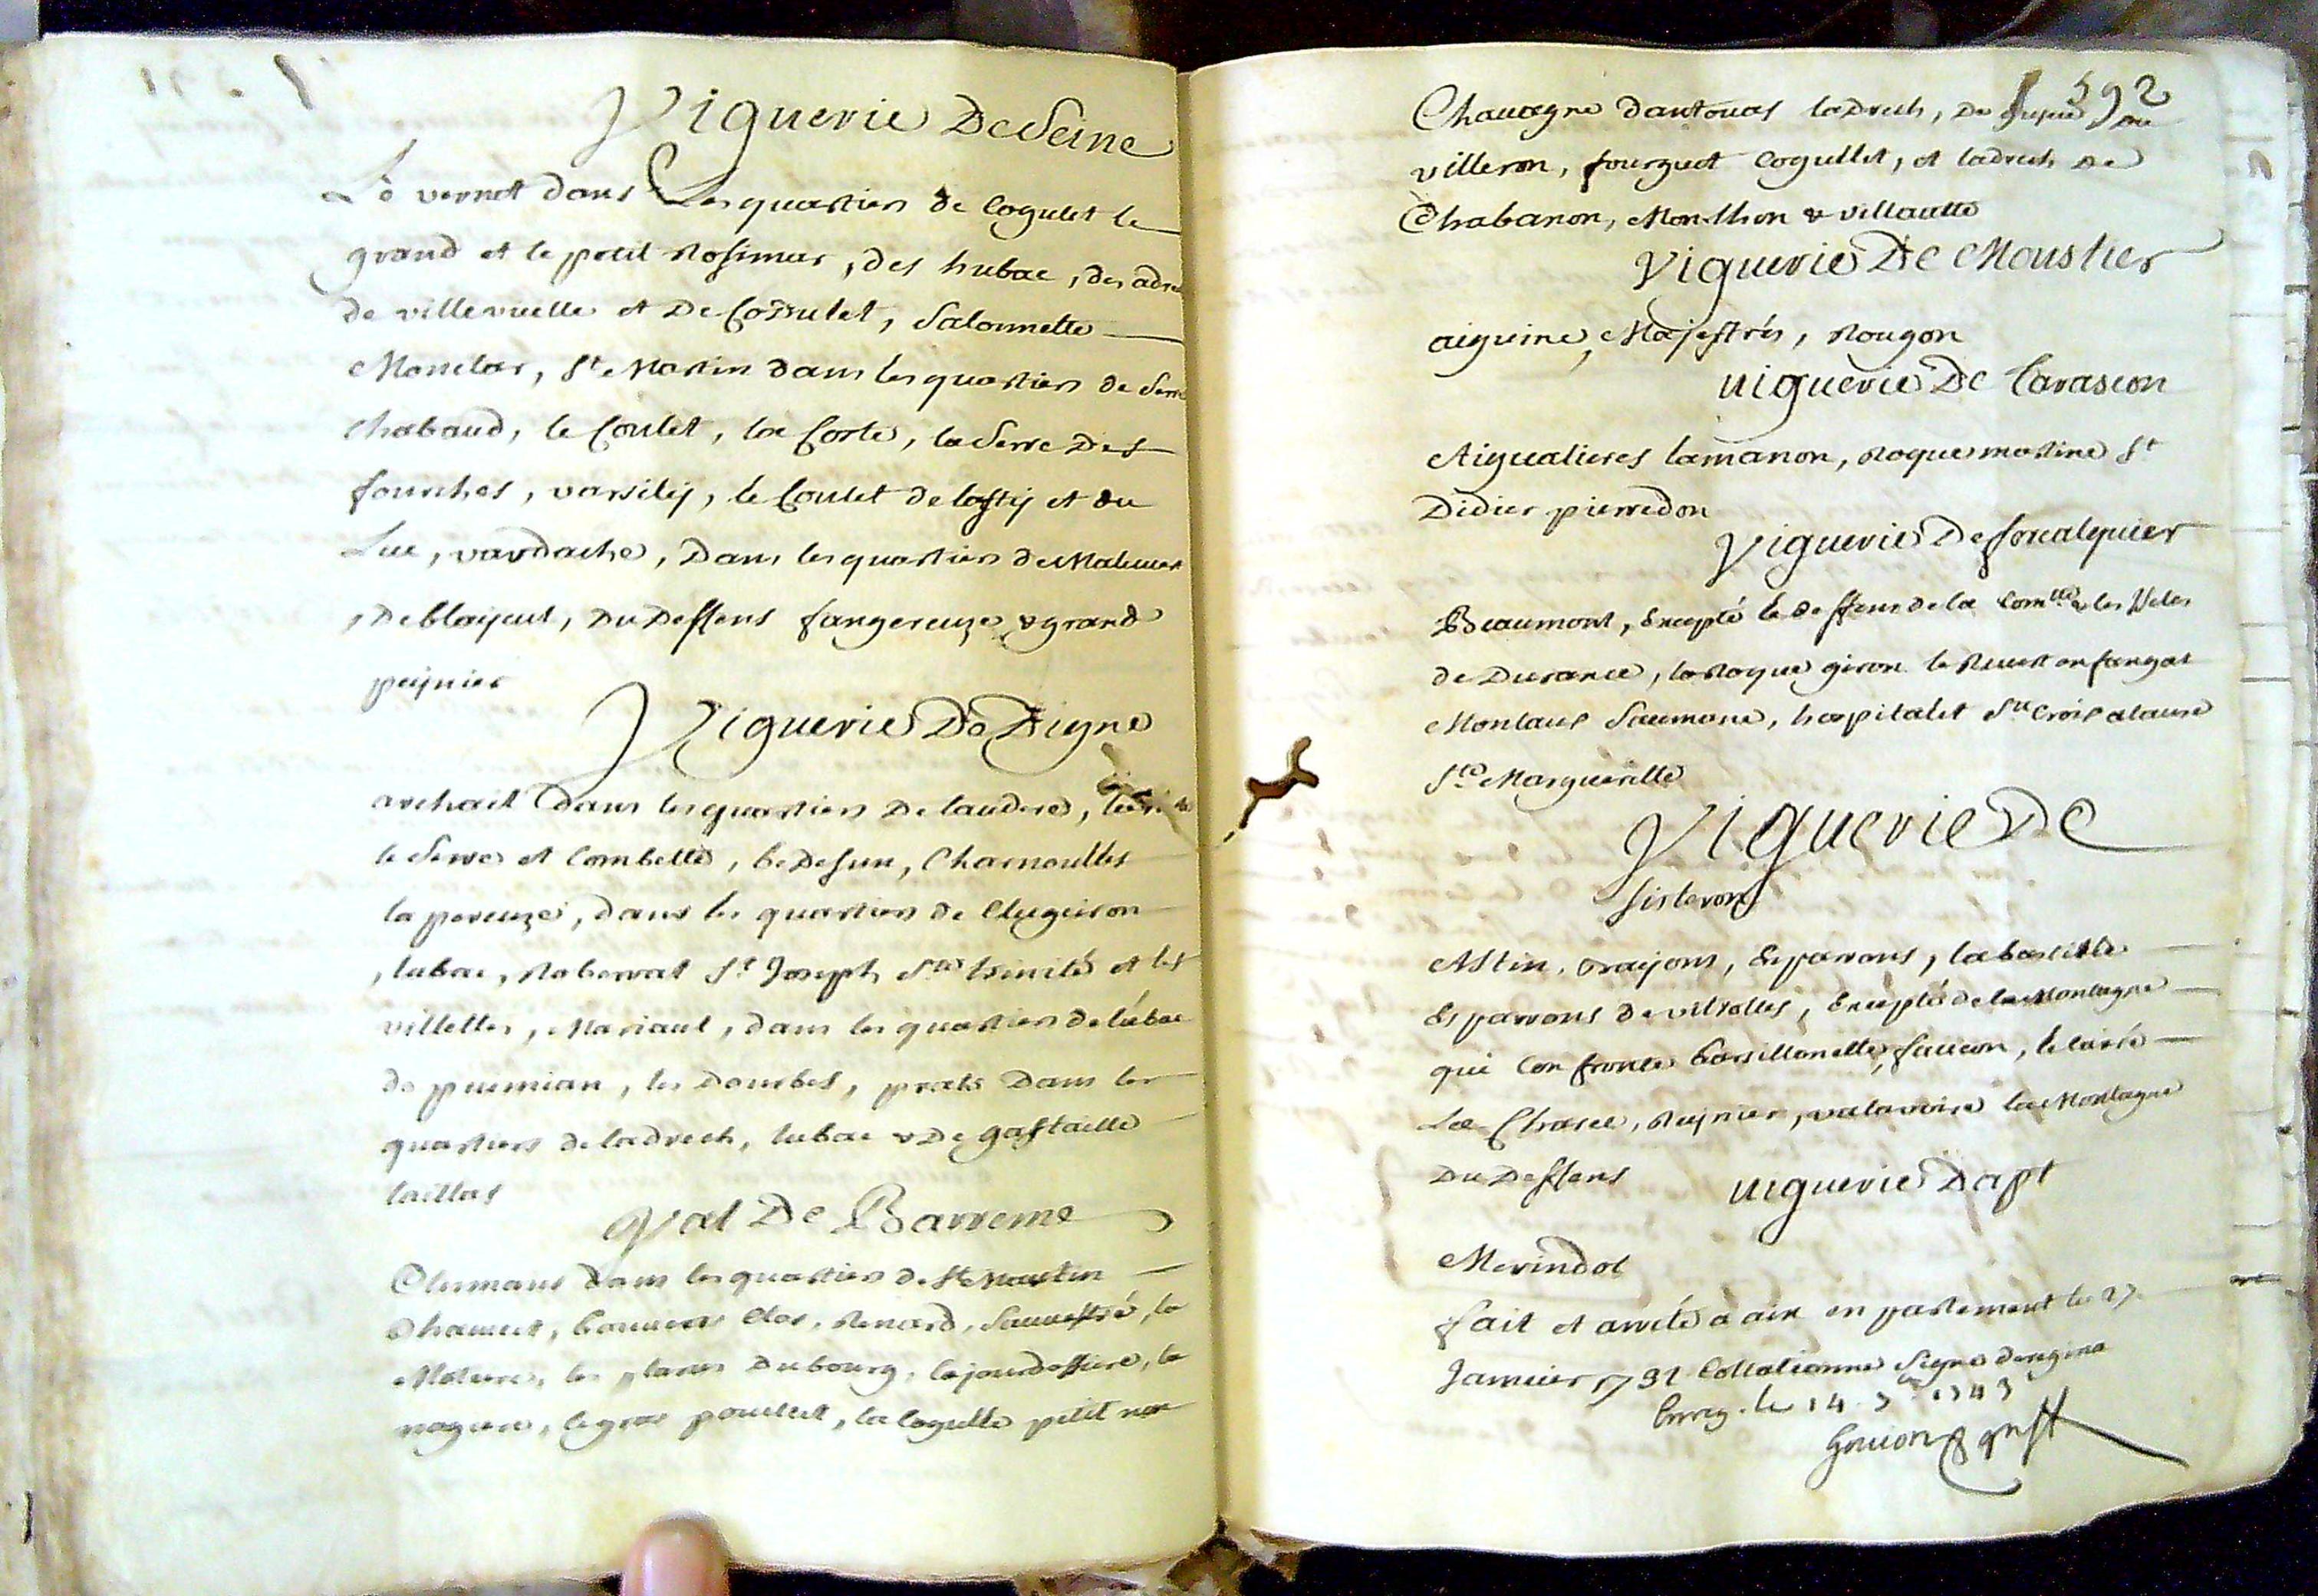 Viguerie De Seine
Le vernet dans Les quartiers de Cogulet le
grand et le petit Rossimas, des hubac, des adre
de villevielle et De Cogulet, Salonnette
Monclar, St Martin dans les quartiers de Serre
Chabaud, le Coulet, la Coste, la Serre Des
fourches, varsily, le Coulet de lastij et du
Luc, vaudache, Dans les quartiers de
, De blayeul, Du Deffens fangereuze & grand
peijnier
Viguerie De Digne
archail dans les quartiers De laudere,
le Serre et Combette, bedesun, Charnoulles
la pereuze, dans les quartiers de Clugeiron
, lubac, Roberrat St Joseph Ste trinité et les
villettes, Mariaut, dans les quartiers de lubac
de puimian, les Dourbes, prats Dans les
quartiers de ladrech, lubac & De gastaille
taillas
Val De Barreme
Clumans dans les quartiers de St Martin
Chauvet, Clos, Renard, Sauvestre, la
les plans Dubourg, la
le gros poulet, la petit
592
Chavagne dantouas ladrech, De
villeron, fourguet Cogullet, et ladrech De
Chabanon, Monthon & villautte
Viguerie De Moustier
aiguine, Majestrés, Rougon
Viguerie De Tarascon
Aigualieres lamanon, Roquemartine St
Didier pierredon
Viguerie De forcalquier
Beaumont, Excepté le deffens de la Comte & les Isles
de Durance, la Roque giron le Revest en fangat
Montaux Saumane, hospitalet Ste Croix alauze
Ste Marguerite
Viguerie De
Sisteron
Astin, Braijons, Esparrons, la bastille
Esparrons de vitrolles, Excepté de la Montagne
qui Confronte barsillonette, faucon, le Caire
La Chance, Reijnier, valavoire la Montagne
Du Deffens
Viguerie Dapt
Merindol
fait et arreté a aix en parlement le 27
Janvier 1731 Collationné Signé deregina
Enreg. le 14 1743